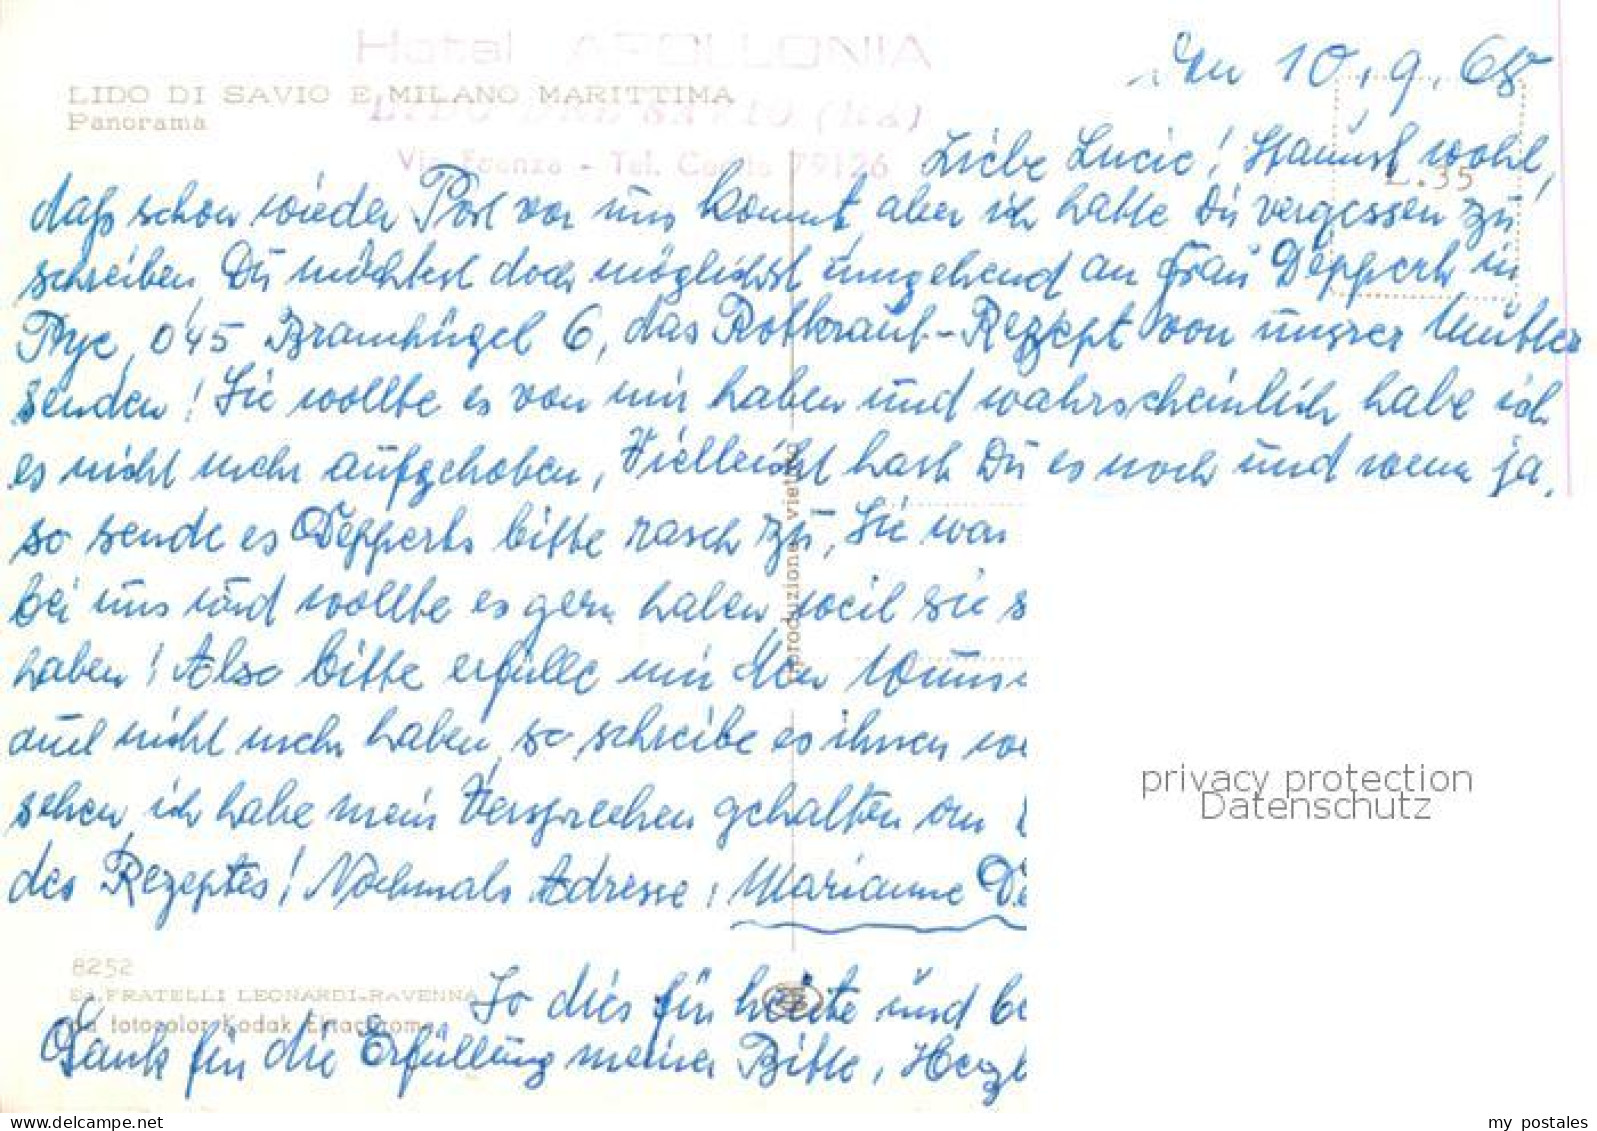 Hotel APOLLONIA
LIDO DI SAVIO E MILANO MARITTIMA
Panorama
LIDO DI SAVIO (RA)
Tel. 79126
L. 35
Den 10.9.68
Liebe Lucie! Staunst wohl,
daß schon wieder Post von uns kommt, aber ich hatte Dir vergessen zu
schreiben, Du möchtest doch möglichst umgehend an Frau Deppert, in
Pye, 045 Bramhügel 6, das Rotkraut-Rezept von unsrer Mutter
senden! Sie wollte es von mir haben und wahrscheinlich habe ich
es nicht mehr aufgehoben, Vielleicht hast Du es noch und wenn ja,
so sende es Depperts bitte rasch zu, Sie war
bei uns und wollte es gern haben, weil sie s
haben! Also bitte erfülle mir den Wuns
und nicht mehr haben, so schreibe es ihnen we
sehen, ich habe mein Versprechen gehalten
des Rezeptes! Nochmals Adresse: Marianne De
8252
Ed. FRATELLI LEONARDI - RAVENNA
da fotocolor Kodak Ektachrome
riproduzione vietata
So dies für heute und be
Dank für die Erfüllung meiner Bitte, Herzl
privacy protection
Datenschutz
my postales